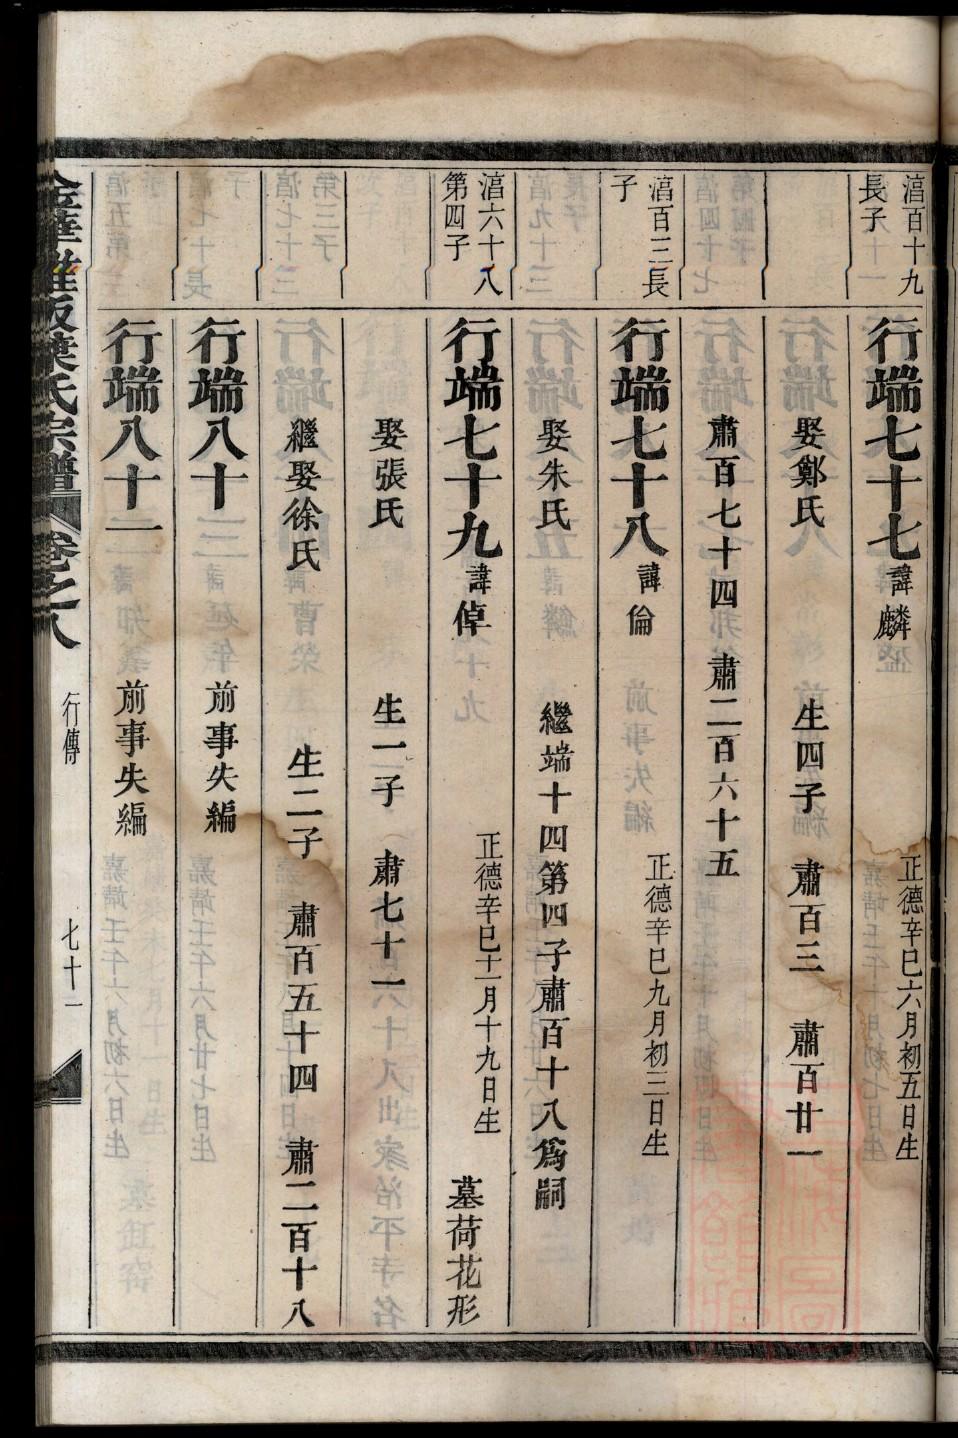 湻百十九
長子
行端七十七 諱麟 正德辛巳六月初五日生
娶鄭氏 生四子 肅百三 肅百廿一
肅百七十四 肅二百六十五
湻百三長
子
行端七十八 諱倫 正德辛巳九月初三日生
娶朱氏 繼端十四第四子肅百十八爲嗣
湻六十八
第四子
行端七十九 諱倬 正德辛巳十一月十九日生 墓荷花形
娶張氏 生一子 肅七十一
繼娶徐氏 生二子 肅百五十四 肅二百十八
行端八十 前事失編
行端八十一 前事失編
葉氏宗譜 卷之八 行傳 七十一